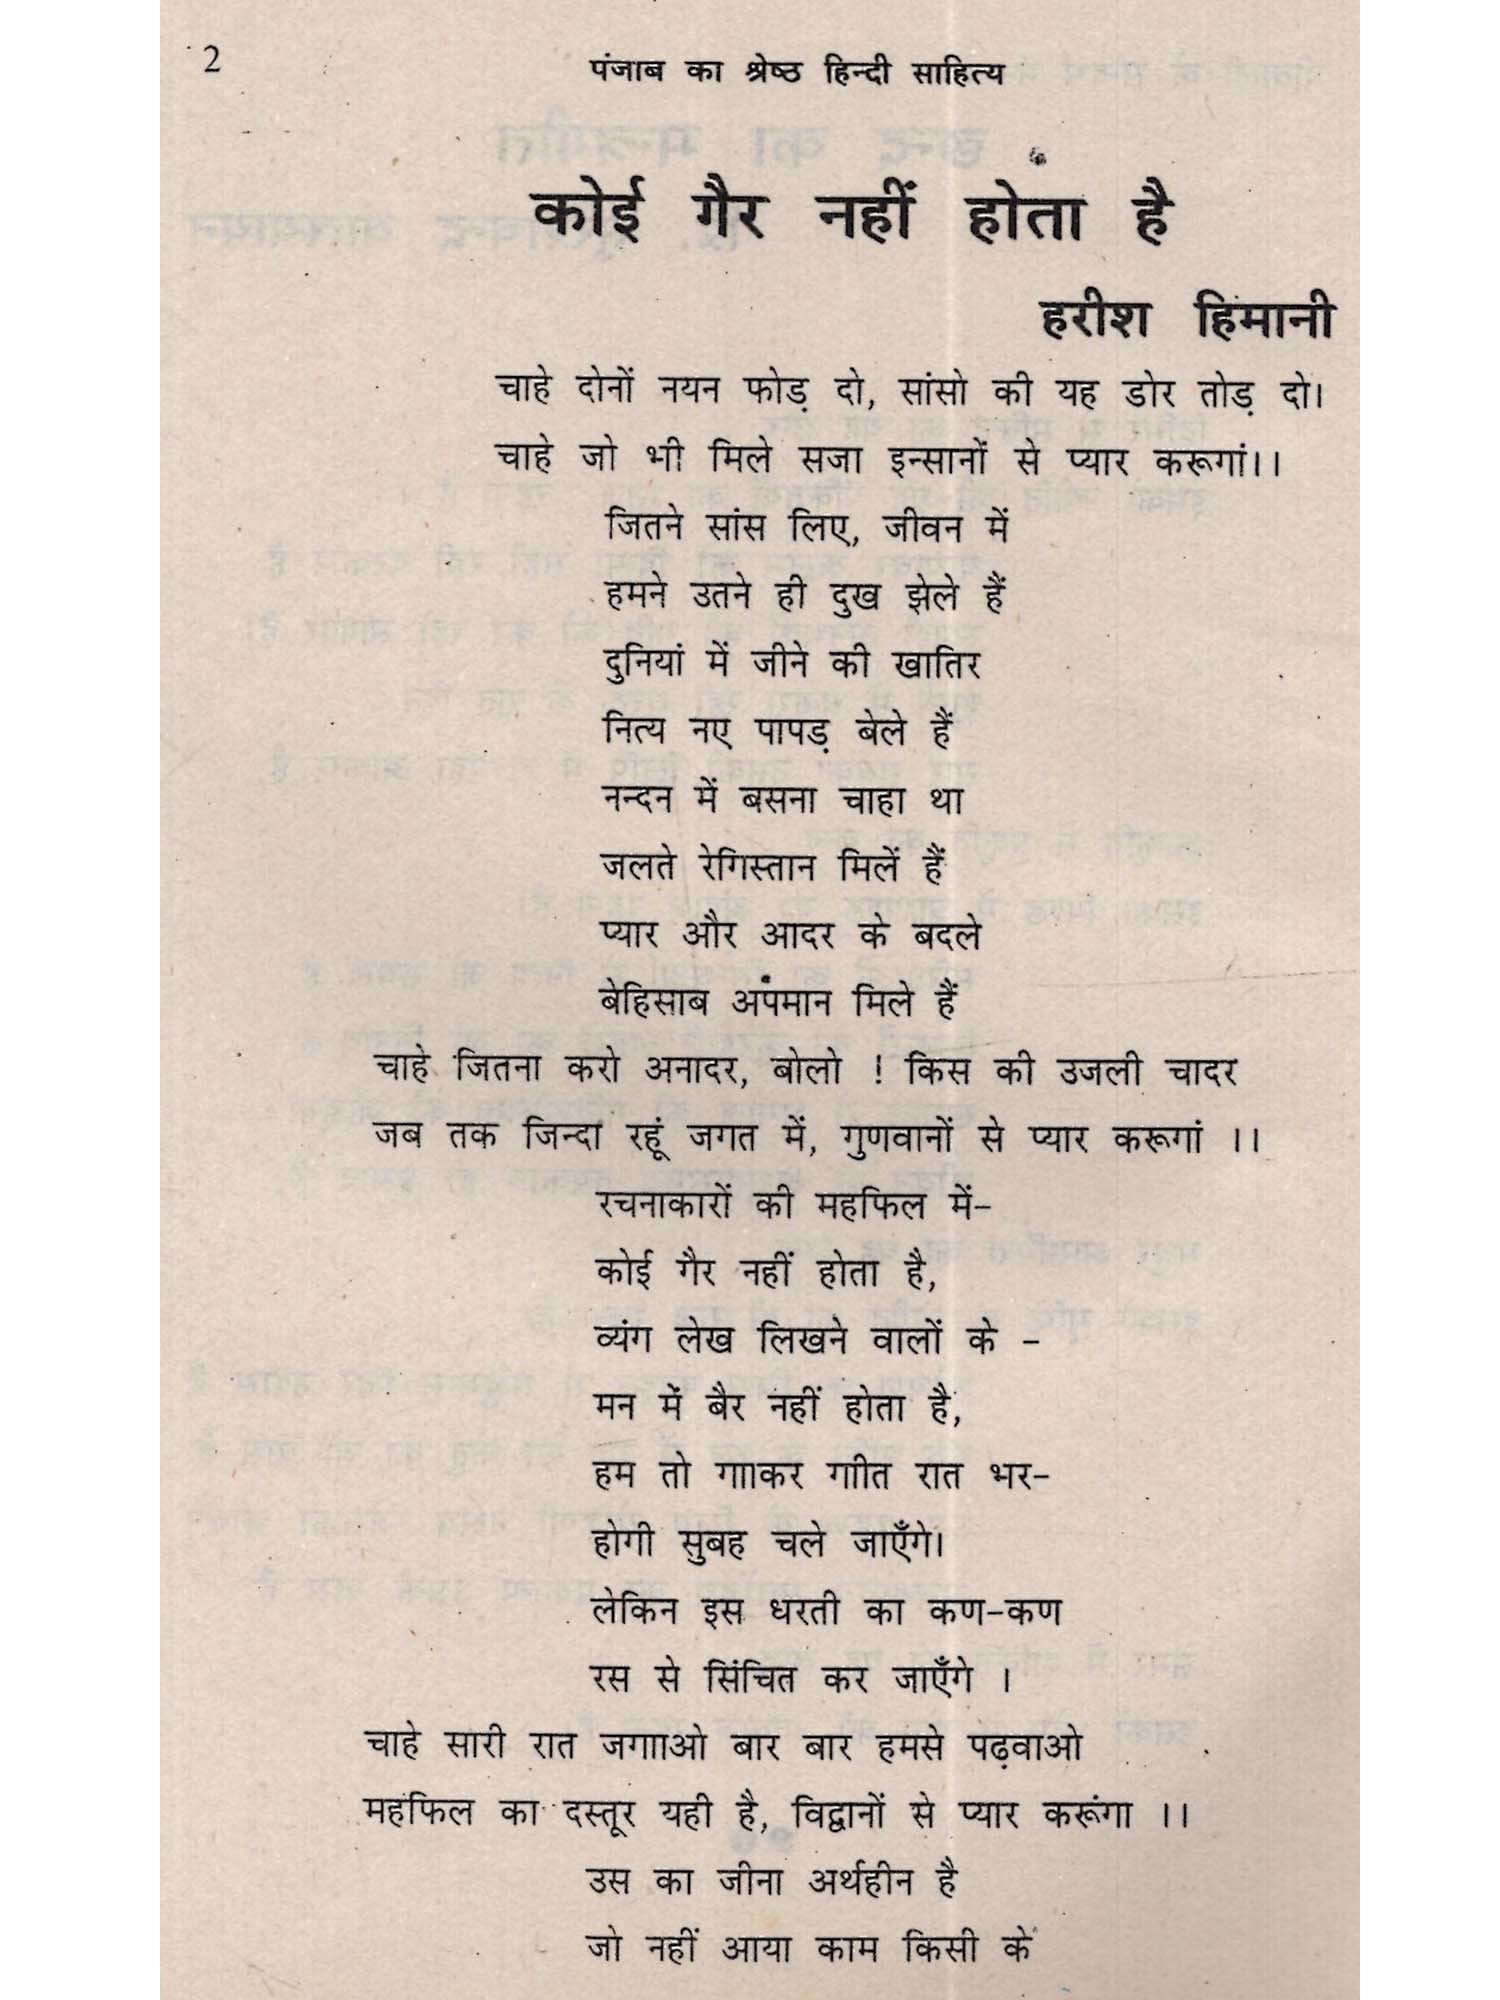 2
पंजाब का श्रेष्ठ हिन्दी साहित्य
कोई गैर नहीं होता है
हरीश हिमानी
चाहे दोनों नयन फोड़ दो, सांसो की यह डोर तोड़ दो।
चाहे जो भी मिले सजा इन्सानों से प्यार करूगां।।
जितने सांस लिए, जीवन में
हमने उतने ही दुख झेले हैं
दुनियां में जीने की खातिर
नित्य नए पापड़ बेले हैं
नन्दन में बसना चाहा था
जलते रेगिस्तान मिलें हैं
प्यार और आदर के बदले
बेहिसाब अपमान मिले हैं
चाहे जितना करो अनादर, बोलो ! किस की उजली चादर
जब तक जिन्दा रहूं जगत में, गुणवानों से प्यार करूगां ।।
रचनाकारों की महफिल में-
कोई गैर नहीं होता है,
व्यंग लेख लिखने वालों के -
मन में बैर नहीं होता है,
हम तो गााकर गाीत रात भर-
होगी सुबह चले जाएँगे।
लेकिन इस धरती का कण-कण
रस से सिंचित कर जाएँगे ।
चाहे सारी रात जगााओ बार बार हमसे पढ़वाओ
महफिल का दस्तूर यही है, विद्वानों से प्यार करूंगा ।।
उस का जीना अर्थहीन है
जो नहीं आया काम किसी के